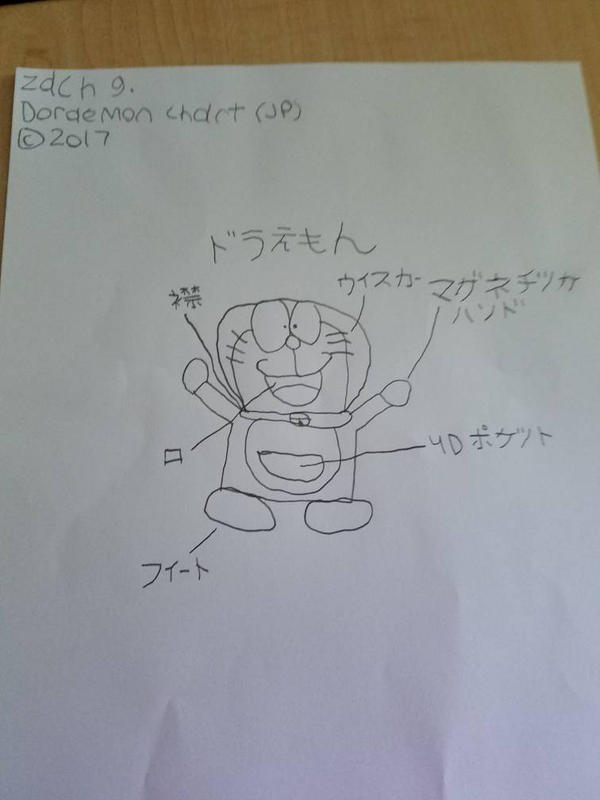 zach g.
Doraemon chart (JP)
©2017
ドラえもん
襟
ウイスカー
マグネヂッカ
ハンド
口
4D ポケット
フィート